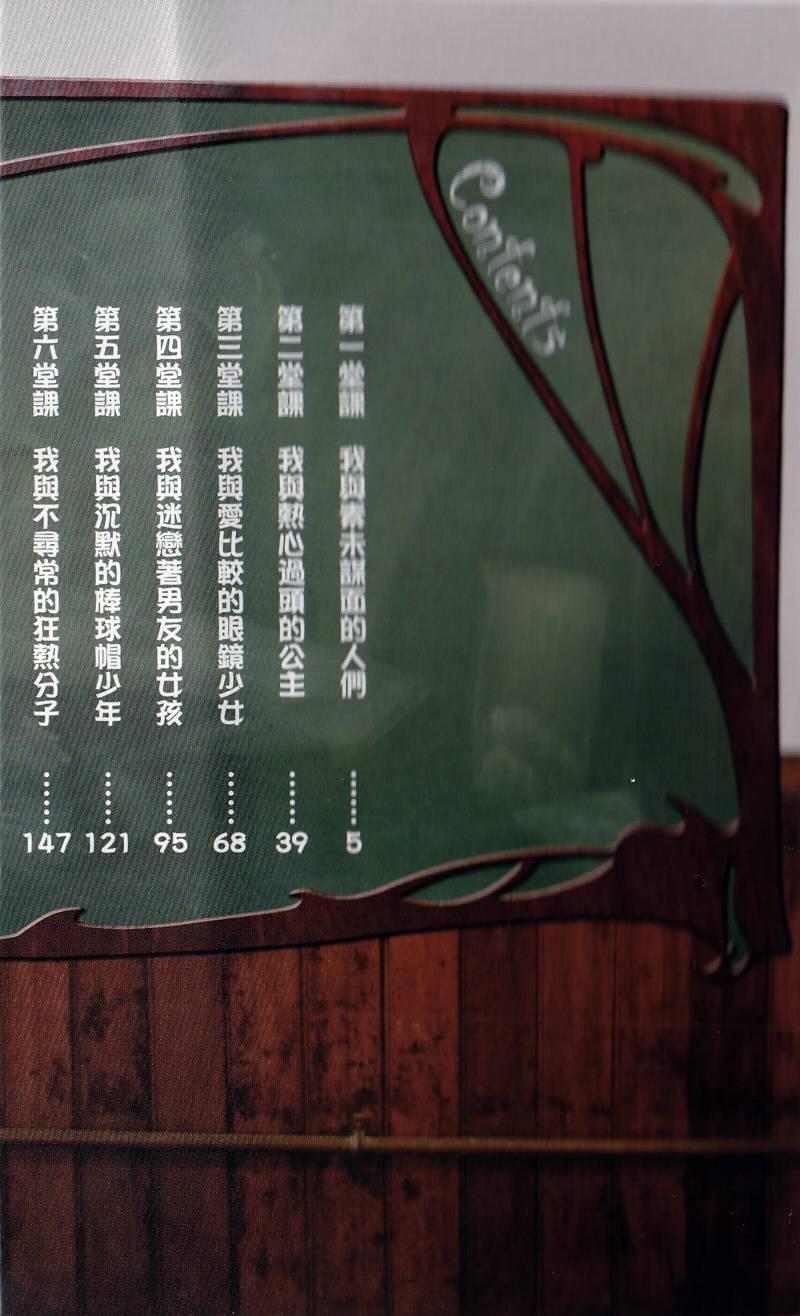 Contents
第一堂課 我與素未謀面的人們 ……5
第二堂課 我與熱心過頭的公主 ……39
第三堂課 我與愛比較的眼鏡少女 ……68
第四堂課 我與迷戀著男友的女孩 ……95
第五堂課 我與沉默的棒球帽少年 ……121
第六堂課 我與不尋常的狂熱分子 ……147